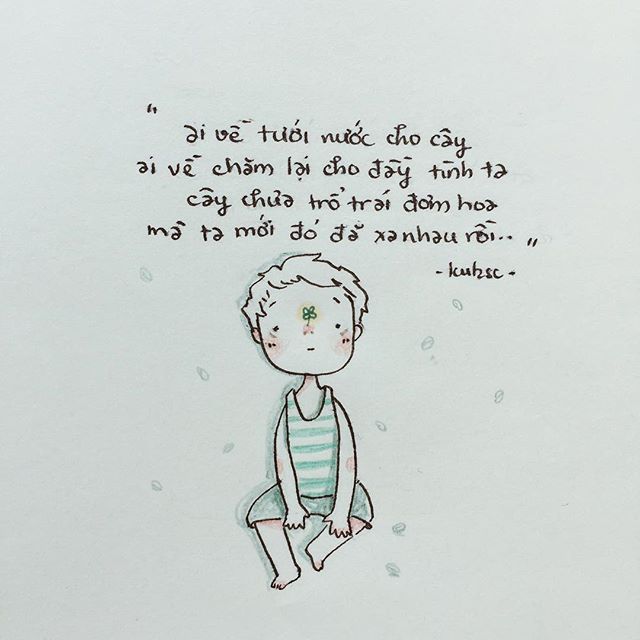 "ai về tưới nước cho cây
ai về chăm lại cho đầy tình ta
cây chưa trổ trái đơm hoa
mà ta mới đó đã xa nhau rồi.."
-kuhsc-